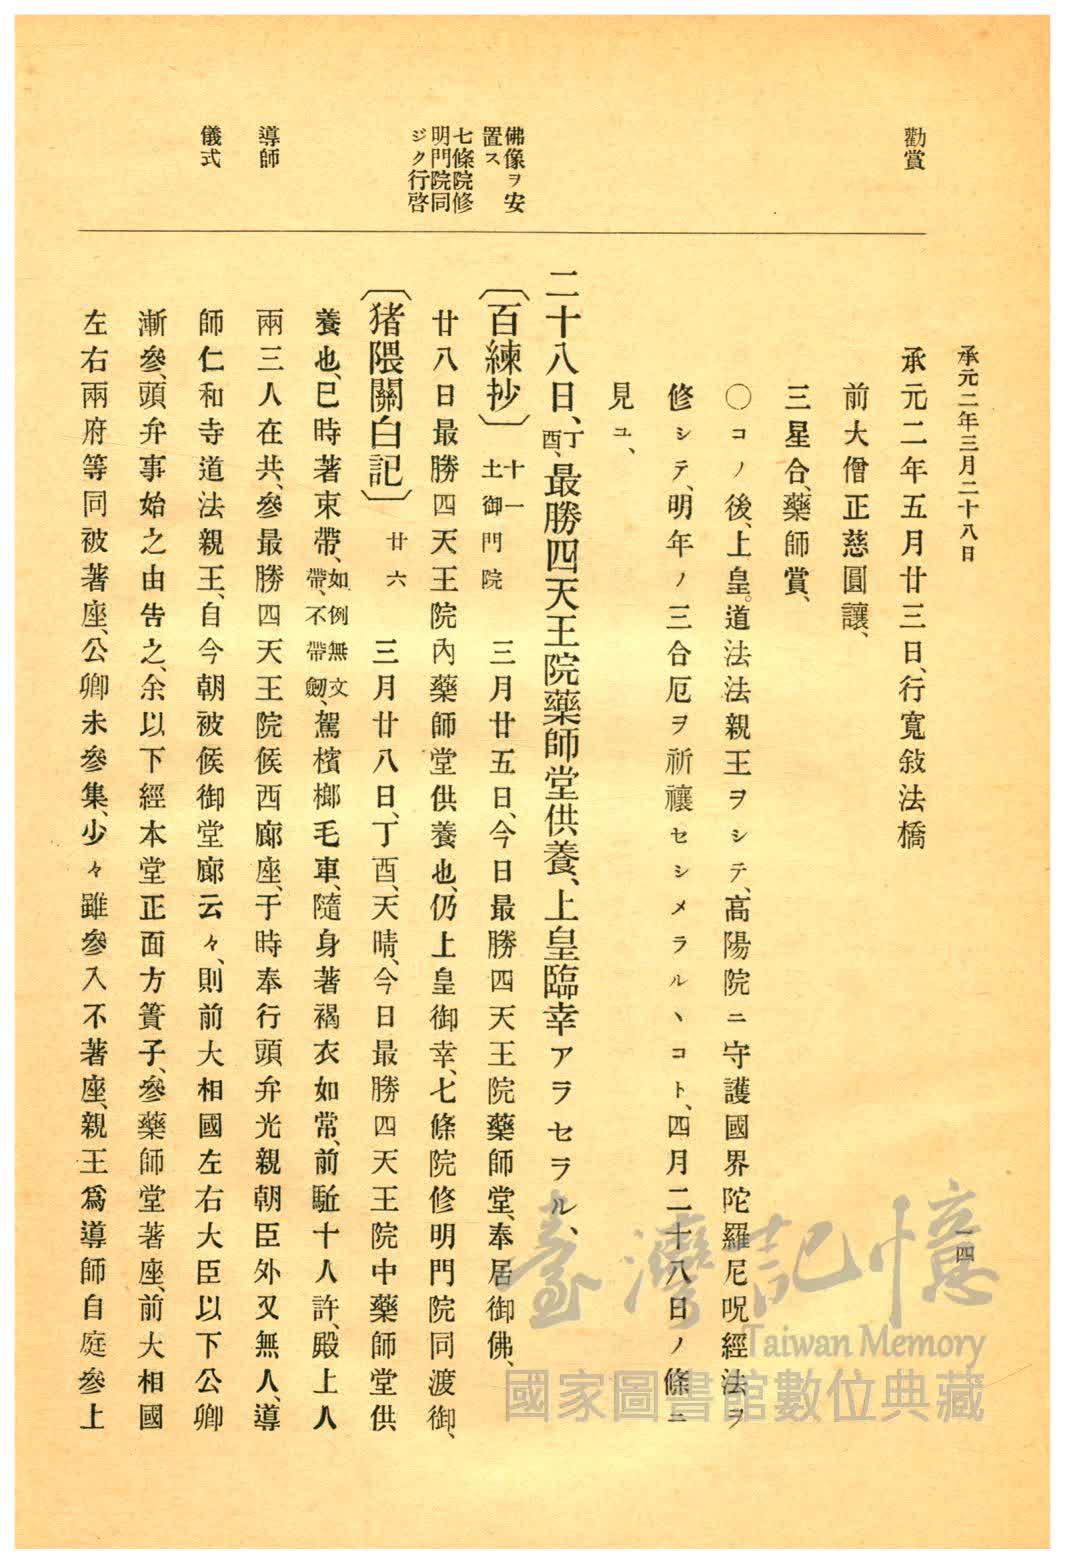 承元二年三月二十八日
一四
勸賞
佛像ヲ安
置ス
七條院修
明門院同
ジク行啓
導師
儀式
承元二年五月廿三日、行寬敍法橋
前大僧正慈圓讓、
三星合、藥師賞、
〇コノ後、上皇。道法法親王ヲシテ、高陽院ニ守護國界陀羅尼呪經法ヲ
修シテ、明年ノ三合厄ヲ祈禳セシメラルヽコト、四月二十八日ノ條ニ
見ユ、
二十八日、丁酉、最勝四天王院藥師堂供養、上皇臨幸アラセラル、
〔百練抄〕十一土御門院 三月廿五日、今日最勝四天王院藥師堂、奉居御佛、
廿八日最勝四天王院內藥師堂供養也、仍上皇御幸、七條院修明門院同渡御、
〔猪隈關白記〕廿六 三月廿八日、丁酉、天晴、今日最勝四天王院中藥師堂供
養也、巳時著束帶、如例無文帶、不帶劒、駕檳榔毛車、隨身著褐衣如常、前駈十人許、殿上人
兩三人在共、參最勝四天王院候西廊座、于時奉行頭弁光親朝臣外又無人、導
師仁和寺道法親王、自今朝被候御堂廊云々、則前大相國左右大臣以下公卿
漸參、頭弁事始之由告之、余以下經本堂正面方簀子、參藥師堂著座、前大相國
左右兩府等同被著座、公卿未參集、少々雖參入不著座、親王爲導師自庭參上
臺灣記憶
Taiwan Memory
國家圖書館數位典藏